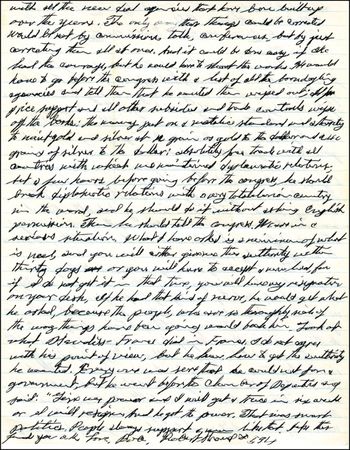 with all the new deal agencies that have been built up
over the years. The only way these things could be corrected
would be not by commissions, talk, conferences, but by just
correcting them all at once. And it could be done easy if he
had the courage, but he would have to shoot the works. He would
have to go before the congress with a list of all the
agencies and tell them that he wanted them wiped out; all
price support and all other subsidies and trade controls wiped
off the books; the money put on a metallic standard and authority
to mint gold and silver at grains gold to the dollar and
grains of silver to the dollar; absolutely free trade with all
countries with which we maintained diplomatic relations,
but a few hours before going before the congress, he should
break diplomatic relations with every totalitarian country
in the world, and he should do it without asking English
permission. Then he should tell the congress, We are in a
serious situation. What I have asked is a minimum of what
is need, and you will either give me this authority within
thirty days or you will have to
if I do not get it in that time, you will have my resignation
on your desk. If he had that kind of nerve, he would get what
he asked, because the people, who are so thoroughly sick of
the way things have been going would back him. Look at
what Mendes-France did in France, I do not agree
with his point of view, but he knew how to get the authority
he wanted. Every one was sure that he could not form a
government, but he went before the Chamber of Deputies and
said: "Give me power and I will get a truce in six weeks
or I will resign." And he got the power. That was smart
politics. People always support a
you. Love, Dick,